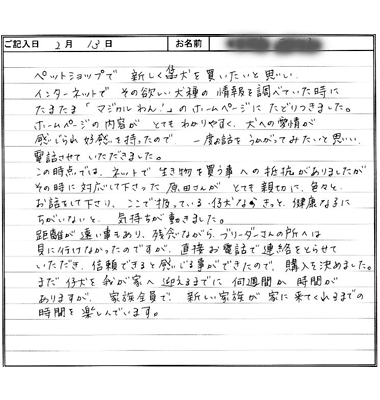 ご記入日 2月 13日 お名前
ペットショップで 新しく 犬を買いたいと思い、
インターネットで その欲しい犬種の 情報を調べていた時に
たまたま「マジカルわん!」のホームページに たどりつきました。
ホームページの内容が とてもわかりやすく、犬への愛情が
感じられ 好感を持ったので、一度お話を うかがってみたいと思い、
電話させて いただきました。
この時点では、ネットで 生き物を買う事への抵抗がありましたが
その時に対応して下さった 原田さんが とても親切に、色々と、
お話をして下り、ここで扱っている仔犬なら きっと、健康なるに
ちがいないと、気持ちが動きました。
距離が遠い事もあり、残念ながら、ブリーダーさんの所へは
見に行けなかったのですが、直接お電話で連絡をとらせて
いただき、信頼できると感じる事ができたので、購入を決めました。
まだ 仔犬を我が家へ 迎えるまでに 何週間か 時間が
ありますが、家族全員で、新しい家族が 家に来てくれるまでの
時間を楽しんでいます。